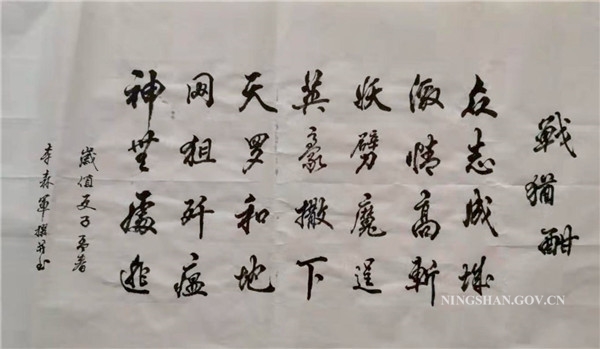 戰猶酣
众志成城
激情高斬
妖劈魔逞
英豪撒下
天罗和地
网狙歼瘟
神無處逃
歲值庚子春
李森軍撰并书
NINGSHAN.GOV.CN